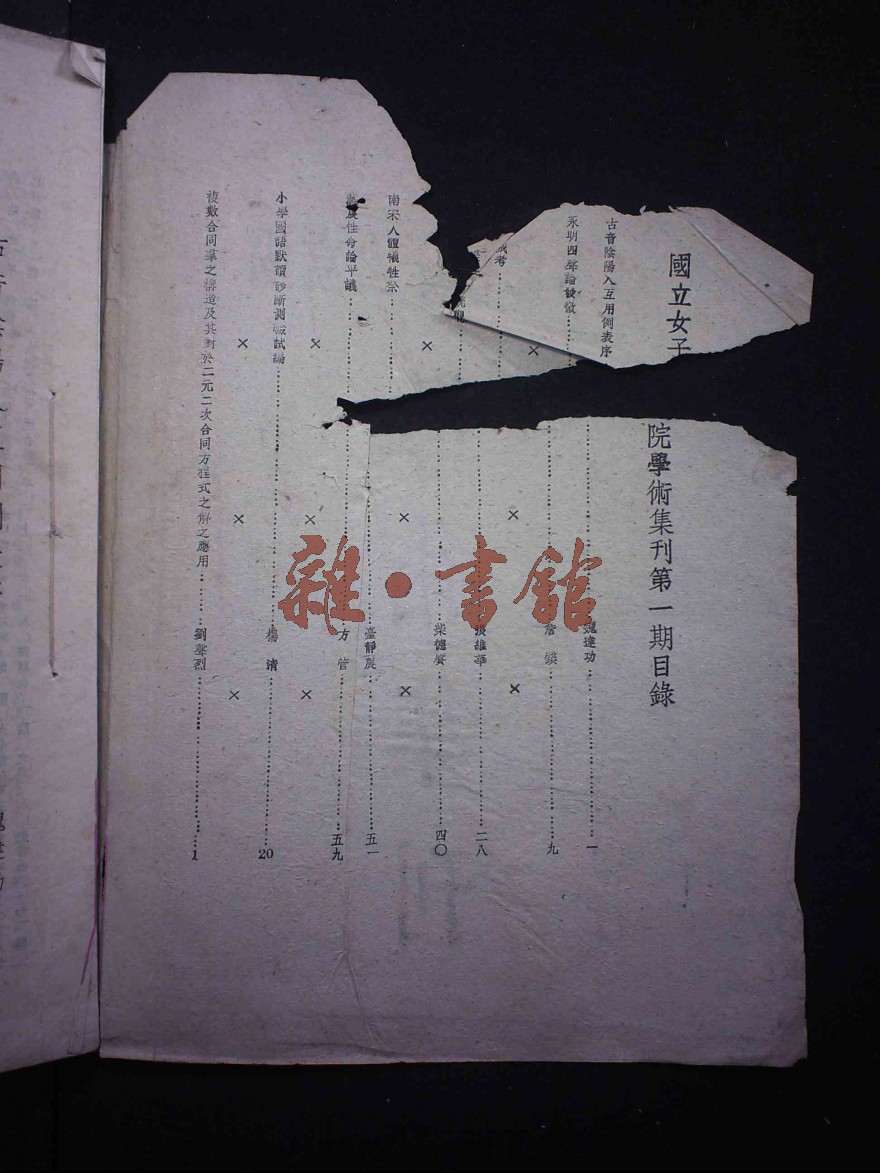 國立女子
院學術集刊第一期目錄
古音陰陽入互用例表序……魏建功……一
永明四聲論……詹鍈……九
考……張雄華……二八
柴德賡……四〇
南宋人體犧牲祭……臺靜農……五一
性命論平議……方管……五九
小學國語默讀診斷測驗試編……楊清……20
複數合同羣之構造及其對於二元二次合同方程式之解之應用……劉聲烈……1
雜·書館